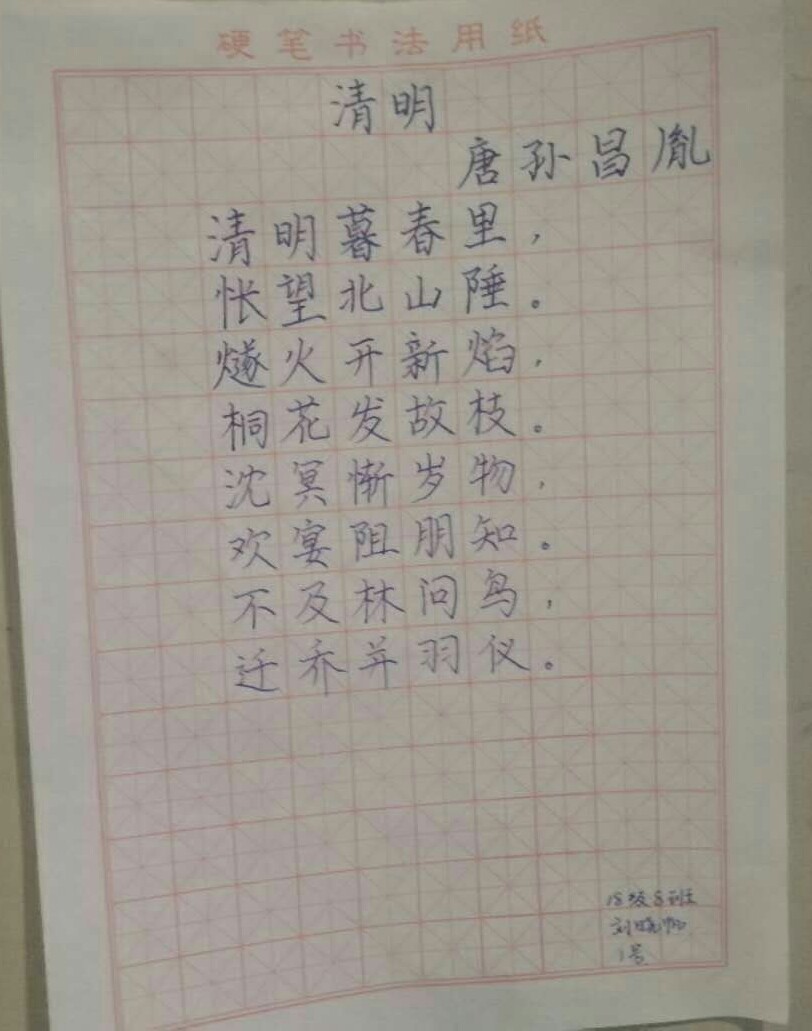 硬笔书法用纸
清明
唐孙昌胤
清明暮春里，
怅望北山陲。
燧火开新焰，
桐花发故枝。
沈冥惭岁物，
欢宴阻朋知。
不及林问鸟，
迁乔并羽仪。
18级8班
刘晓
1号